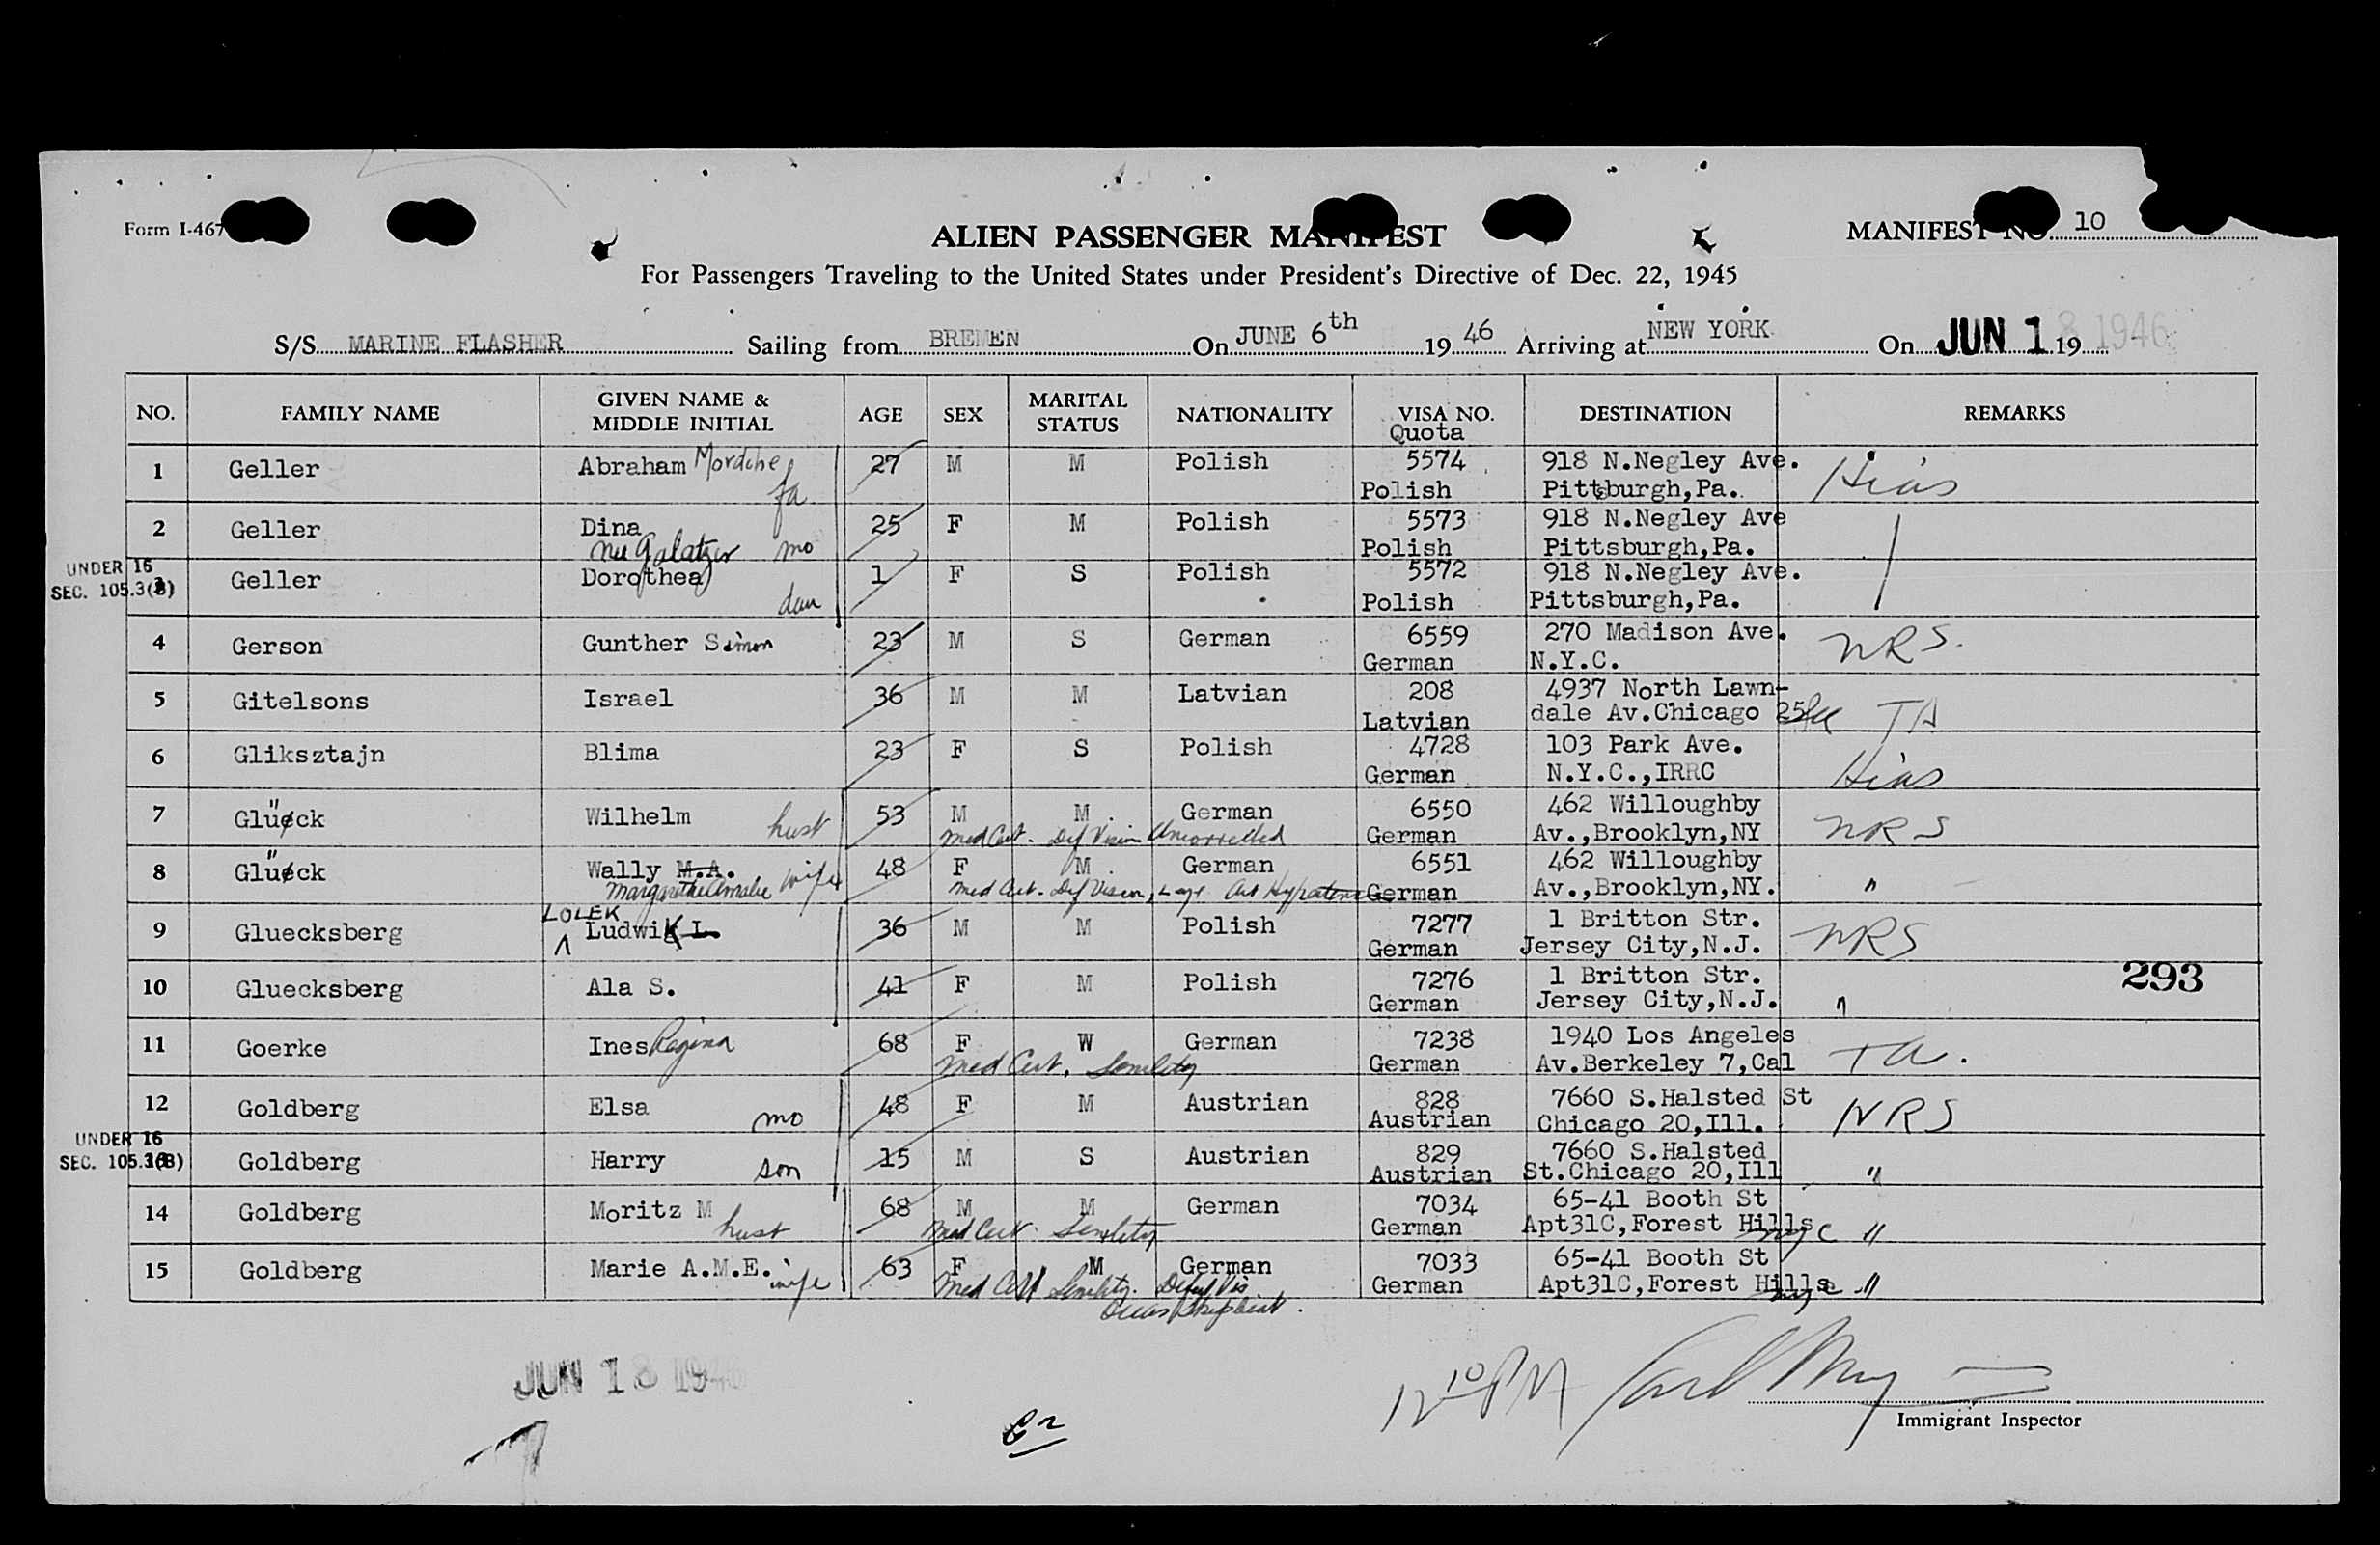 Form I-467
ALIEN PASSENGER MANIFEST
MANIFEST NO. 10
For Passengers Traveling to the United States under President's Directive of Dec. 22, 1945
S/S MARINE FLASHER Sailing from BREMEN On JUNE 6th 19 46 Arriving at NEW YORK On JUN 18 1946 19
NO. FAMILY NAME GIVEN NAME & MIDDLE INITIAL AGE SEX MARITAL STATUS NATIONALITY VISA NO. Quota DESTINATION REMARKS
1 Geller Abraham Mordche fa 27 M M Polish 5574 918 N.Negley Ave. Hias
Polish Pittsburgh,Pa.
2 Geller Dina 25 F M Polish 5573 918 N.Negley Ave
nee Galatzer mo Polish Pittsburgh,Pa.
UNDER 16
SEC. 105.3(B)
3 Geller Dorothea dau 1 F S Polish 5572 918 N.Negley Ave.
Polish Pittsburgh,Pa.
4 Gerson Gunther Simon 23 M S German 6559 270 Madison Ave. NRS.
German N.Y.C.
5 Gitelsons Israel 36 M M Latvian 208 4937 North Lawn-
Latvian dale Av.Chicago 25 Ill TA
6 Gliksztajn Blima 23 F S Polish 4728 103 Park Ave.
German N.Y.C.,IRRC Hias
7 Glüeck Wilhelm hust 53 M M German 6550 462 Willoughby NRS
Med Cert. Def Vision Uncorrected German Av.,Brooklyn,NY
8 Glüeck Wally M.A. wife 48 F M German 6551 462 Willoughby "
Margarethe Amalie Med Cert. Def Vision, German Av.,Brooklyn,NY.
LOLEK
9 Gluecksberg Ludwik L. 36 M M Polish 7277 1 Britton Str. NRS
German Jersey City,N.J.
10 Gluecksberg Ala S. 41 F M Polish 7276 1 Britton Str. 293
German Jersey City,N.J. "
11 Goerke Ines Regina 68 F W German 7238 1940 Los Angeles TA.
Med Cert. Senility German Av.Berkeley 7,Cal
12 Goldberg Elsa mo 48 F M Austrian 828 7660 S.Halsted St NRS
Austrian Chicago 20,Ill.
UNDER 16
SEC. 105.3(B)
Goldberg Harry son 15 M S Austrian 829 7660 S.Halsted "
Austrian St.Chicago 20,Ill
14 Goldberg Moritz M hust 68 M M German 7034 65-41 Booth St
Med Cert. Senility German Apt31C,Forest Hills NYC "
15 Goldberg Marie A.M.E. wife 63 F M German 7033 65-41 Booth St
Med Cert Senility. Def Vis German Apt31C,Forest Hills NYC "
JUN 18 1946
12 10 PM
Immigrant Inspector